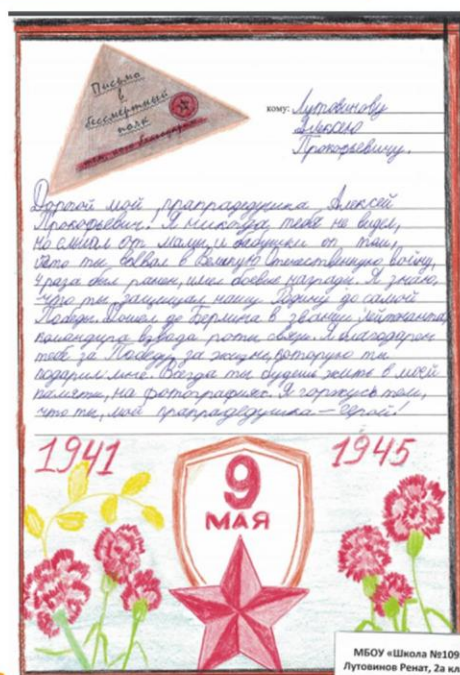 Письмо
в
бессмертный
полк
кому: Лутовинову
Алексею
Прокофьевичу.
Дорогой мой прапрадедушка Алексей
Прокофьевич! Я никогда тебя не видел,
но слышал от мамы и бабушки о том,
что ты воевал в Великую Отечественную войну,
раза был ранен, имел боевые награды. Я знаю,
что ты защищал нашу Родину до самой
Победы. Дошел до Берлина в звании лейтенанта,
командира взвода роты связи. Я благодарен
тебе за Победу, за жизнь, которую ты
подарил мне. Всегда ты будешь жить в моей
памяти, на фотографиях. Я горжусь тем,
что ты, мой прапрадедушка – герой!
1941
1945
9
МАЯ
МБОУ «Школа №109
Лутовинов Ренат, 2а кл